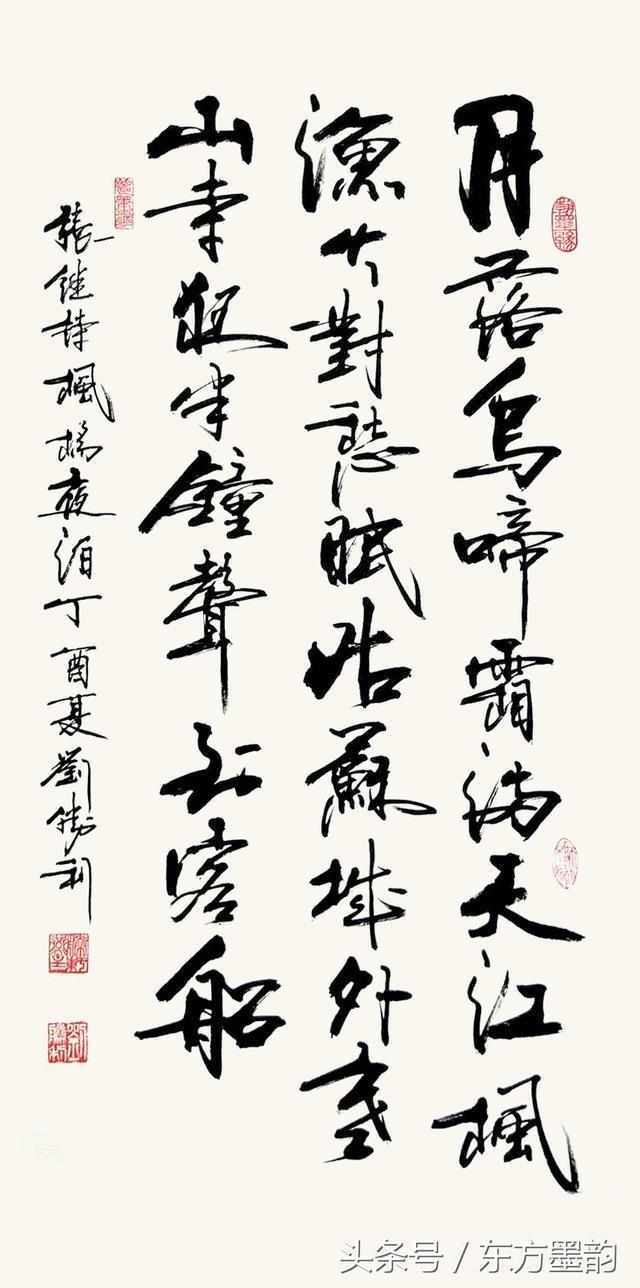 月落烏啼霜滿天江楓
漁火對愁眠姑蘇城外寒
山寺夜半鐘聲到客船
張继詩楓橋夜泊丁酉夏劉勝利
头条号 / 东方墨韵